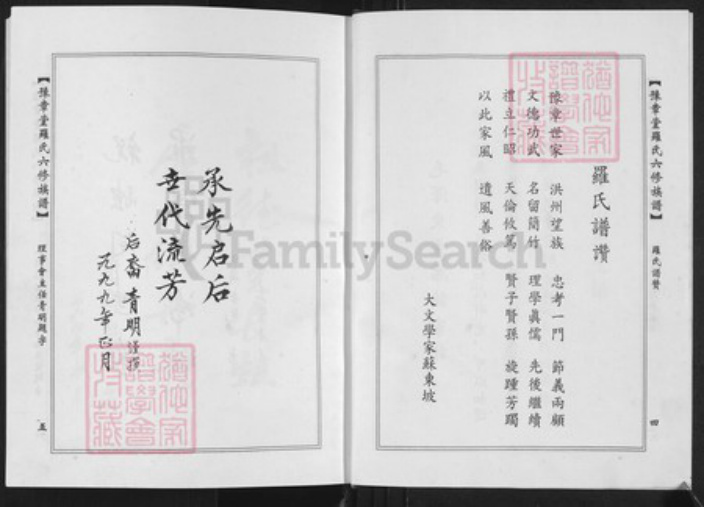 【豫章堂羅氏六修族譜】
羅氏譜贊
四
羅氏譜讚
豫章世家 洪州望族 忠孝一門 節義兩顧
文德功武 名留簡竹 理學真儒 先後繼續
禮立仁昭 天倫攸篤 賢子賢孫 旋踵芳躅
以此家風 遺風善俗
大文學家蘇東坡
承先启后
世代流芳
后裔 青明謹撰
元九九九年正月
【豫章堂羅氏六修族譜】
理事會主任青明題字
五
FamilySearch